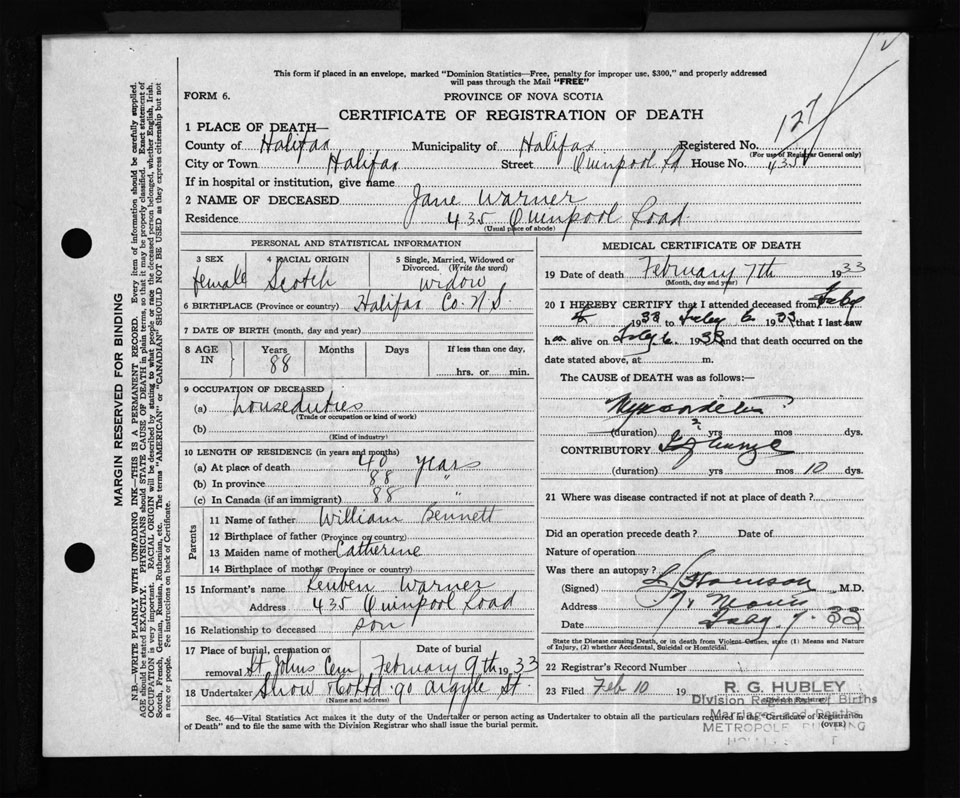 This form if placed in an envelope, marked "Dominion Statistics—Free, penalty for improper use, $300," and properly addressed
will pass through the Mail "FREE"
FORM 6.
PROVINCE OF NOVA SCOTIA
CERTIFICATE OF REGISTRATION OF DEATH
127
1 PLACE OF DEATH—
County of Halifax Municipality of Halifax Registered No.
(For use of Registrar General only)
City or Town Halifax Street Quinpool Rd House No. 435
If in hospital or institution, give name
2 NAME OF DECEASED Jane Warner
Residence 435 Quinpool Road
(Usual place of abode)
PERSONAL AND STATISTICAL INFORMATION
3 SEX 4 RACIAL ORIGIN 5 Single, Married, Widowed or
Divorced. (Write the word)
female Scotch widow
6 BIRTHPLACE (Province or country) Halifax Co. N.S.
7 DATE OF BIRTH (month, day and year)
8 AGE IN Years Months Days If less than one day,
88 hrs. or min.
9 OCCUPATION OF DECEASED
(a) housduties
(Trade or occupation or kind of work)
(b)
(Kind of industry)
10 LENGTH OF RESIDENCE (in years and months)
(a) At place of death 40 years
(b) In province 88 "
(c) In Canada (if an immigrant) 88 "
Parents
11 Name of father William Bennett
12 Birthplace of father (Province or country)
13 Maiden name of mother Catherine
14 Birthplace of mother (Province or country)
15 Informant's name Reuben Warner
Address 435 Quinpool Road
16 Relationship to deceased son
17 Place of burial, cremation or Date of burial
removal St Johns Cem February 9th 1933
18 Undertaker Snow & Co Ltd. 90 Argyle St.
(Name and address)
MEDICAL CERTIFICATE OF DEATH
19 Date of death February 7th 1933
(Month, day and year)
20 I HEREBY CERTIFY that I attended deceased from Feby
1933 to Feby 6 1933 that I last saw
h alive on Feby 6 1933 and that death occurred on the
date stated above, at m.
The CAUSE OF DEATH was as follows:—
Myocarditis
(duration) 2 yrs mos dys.
CONTRIBUTORY
(duration) yrs mos 10 dys.
21 Where was disease contracted if not at place of death?
Did an operation precede death? Date of
Nature of operation
Was there an autopsy?
(Signed) M.D.
Address
Date Feby 7. 33
State the Disease causing Death, or in death from Violent Causes, state (1) Means and Nature
of Injury, (2) whether Accidental, Suicidal or Homicidal.
22 Registrar's Record Number
23 Filed Feb 10 19
R. G. HUBLEY
Division Registrar
Division Registrar of Births
Marriages and Deaths
METROPOLE BUILDING
Sec. 46—Vital Statistics Act makes it the duty of the Undertaker or person acting as Undertaker to obtain all the particulars required in the "Certificate of Registration
of Death" and to file the same with the Division Registrar who shall issue the burial permit. (OVER)
MARGIN RESERVED FOR BINDING
N.B.—WRITE PLAINLY WITH UNFADING INK—THIS IS A PERMANENT RECORD. Every item of information should be carefully supplied.
AGE should be stated EXACTLY. PHYSICIANS should STATE CAUSE OF DEATH in plain terms, so that it may be properly classified. Exact statement of
OCCUPATION is very important. RACIAL ORIGIN will be described by stating to what people or race the deceased person belonged, whether English, Irish,
Scotch, French, German, Russian, Ruthenian, etc. The terms "AMERICAN" or "CANADIAN" SHOULD NOT BE USED as they express citizenship but not
a race or people. See instructions on back of Certificate.